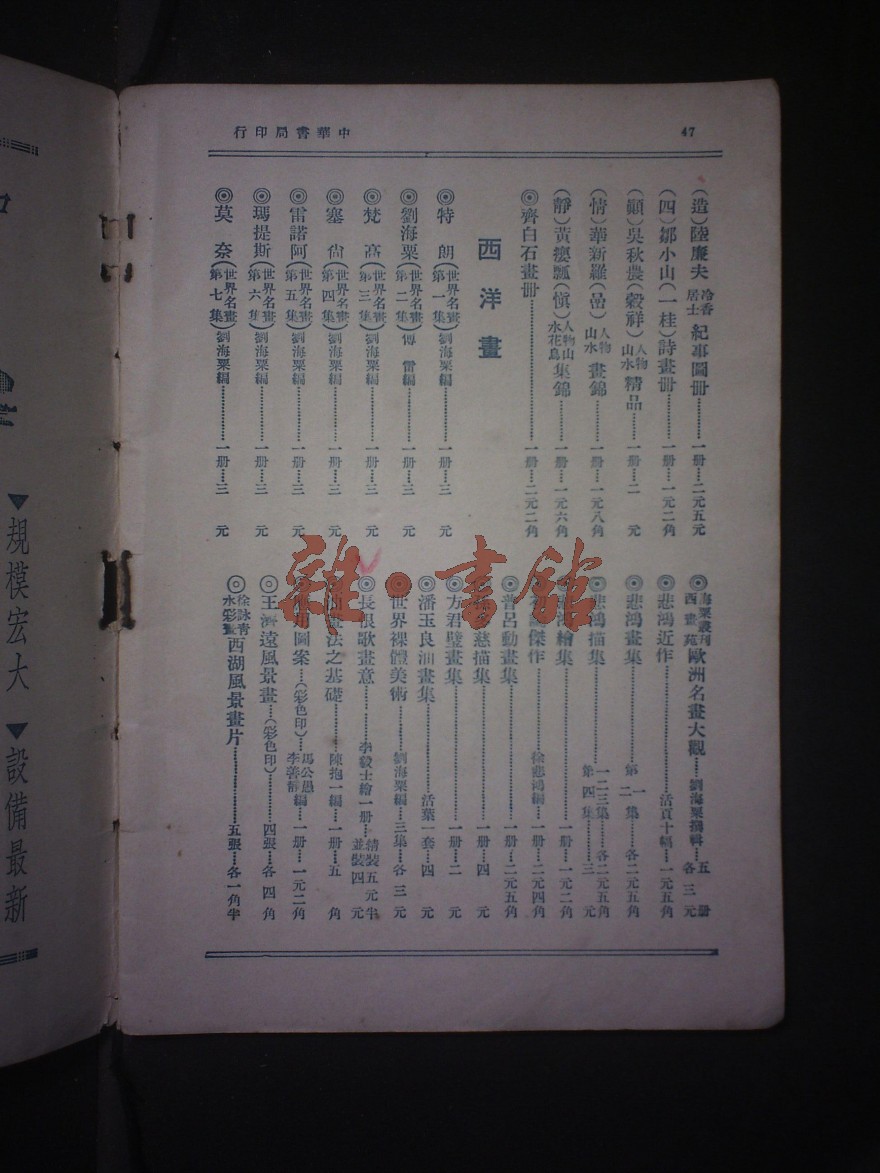 中華書局印行
47
(造)陸廉夫冷香居士紀事圖册………一册…二元五元
(四)鄒小山(一桂)詩畫册………一册…一元二角
(顧)吳秋農(穀祥)人物山水精品……一册…二元
(情)華新羅(嵒)人物山水畫錦……一册…一元八角
(靜)黃癭瓢(愼)人物山水花鳥集錦……一册…一元六角
◎齊白石畫册………一册…二元二角
西洋畫
◎特朗(世界名畫第一集)劉海粟編………一册…三元
◎劉海粟(世界名畫第二集)傅雷編………一册…三元
◎梵高(世界名畫第三集)劉海粟編………一册…三元
◎塞尙(世界名畫第四集)劉海粟編………一册…三元
◎雷諾阿(世界名畫第五集)劉海粟編………一册…三元
◎瑪提斯(世界名畫第六集)劉海粟編………一册…三元
◎莫奈(世界名畫第七集)劉海粟編………一册…三元
◎海粟叢刊西畫苑歐洲名畫大觀……劉海粟編輯……五册各三元
◎悲鴻近作………活頁十幅……一元五角
◎悲鴻畫集………第一二集……各二元五角
◎悲鴻描集………一二三集…各二元五角 第四集……三元
繪集………一册…一元二角
傑作………徐悲鴻編…一册…二元四角
◎普呂動畫集………一册…二元五角
慈描集………一册…四元
方君璧畫集………一册…二元
◎潘玉良油畫集………活葉一套…四元
世界裸體美術………劉海粟編…三集…各三元
◎長恨歌畫意………李毅士繪一册…精裝五元半 並裝四元
畫法之基礎………陳抱一編…一册…五角
圖案…(彩色印)…馬公愚 李善靜編…一册…一元二角
◎王濟遠風景畫…(彩色印)……四張…各四角
◎徐詠青水彩畫西湖風景畫片………五張…各一角半
雜·書館
▼規模宏大▼設備最新